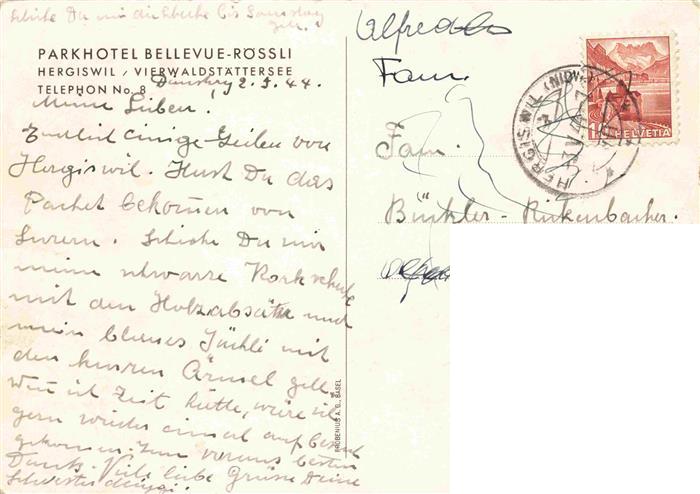 Schicke Du mir die Schuhe bis Samstag
gell.
PARKHOTEL BELLEVUE-RÖSSLI
HERGISWIL / VIERWALDSTÄTTERSEE
TELEPHON No. 8
Dienstag 2.5.44.
Meine Lieben!
Endlich einige Zeilen von
Hergiswil. Hast Du das
Packet bekommen von
Luzern. Schicke Du mir
meine schwarze Korkschuhe
mit den Holzabsätze und
mein blaues Jäckli mit
den kurzen Ärmel gell.
Wen ich Zeit hätte, wäre ich
gern wieder einmal auf Besuch
gekommen. Zum voraus besten
Dank. Viele liebe Grüsse Deine
Schwester
Alfred
Fam.
Fam.
Bünkler-Rickenbacher.
HERGISWIL (NIDW.)
HELVETIA
FROBENIUS A. G., BASEL